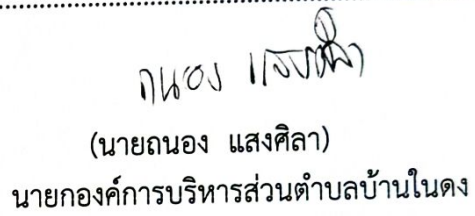 ถนอง แสงศิลา
(นายถนอง แสงศิลา)
นายกองค์การบริหารส่วนตำบลบ้านในดง